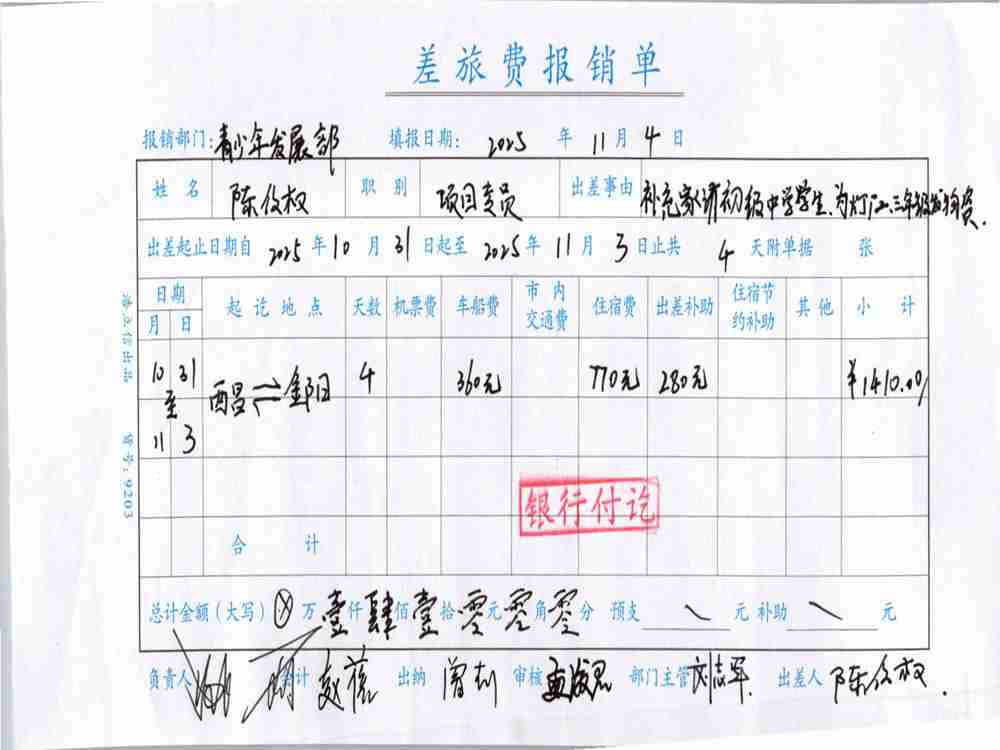 差旅费报销单
报销部门:青少年发展部 填报日期: 2025 年 11 月 4 日
姓名 陈仅权 职别 项目专员 出差事由 补充家访初级中学学生、为灯
出差起止日期自 2025 年 10 月 31 日起至 2025 年 11 月 3 日止共 4 天附单据 张
日期 起讫地点 天数 机票费 车船费 市内交通费 住宿费 出差补助 住宿节约补助 其他 小计
月 日
10 31 至 11 3 西昌⇌金阳 4 360元 770元 280元 ¥1410.00
银行付讫
合计
总计金额(大写) ⊗ 万 壹 仟 肆 佰 壹 拾 零 元 零 角 零 分 预支 \ 元 补助 \ 元
负责人 会计 赵蓓 出纳 曾杉 审核 部门主管 刘志军 出差人 陈仅权
浩立信出品 货号:9203